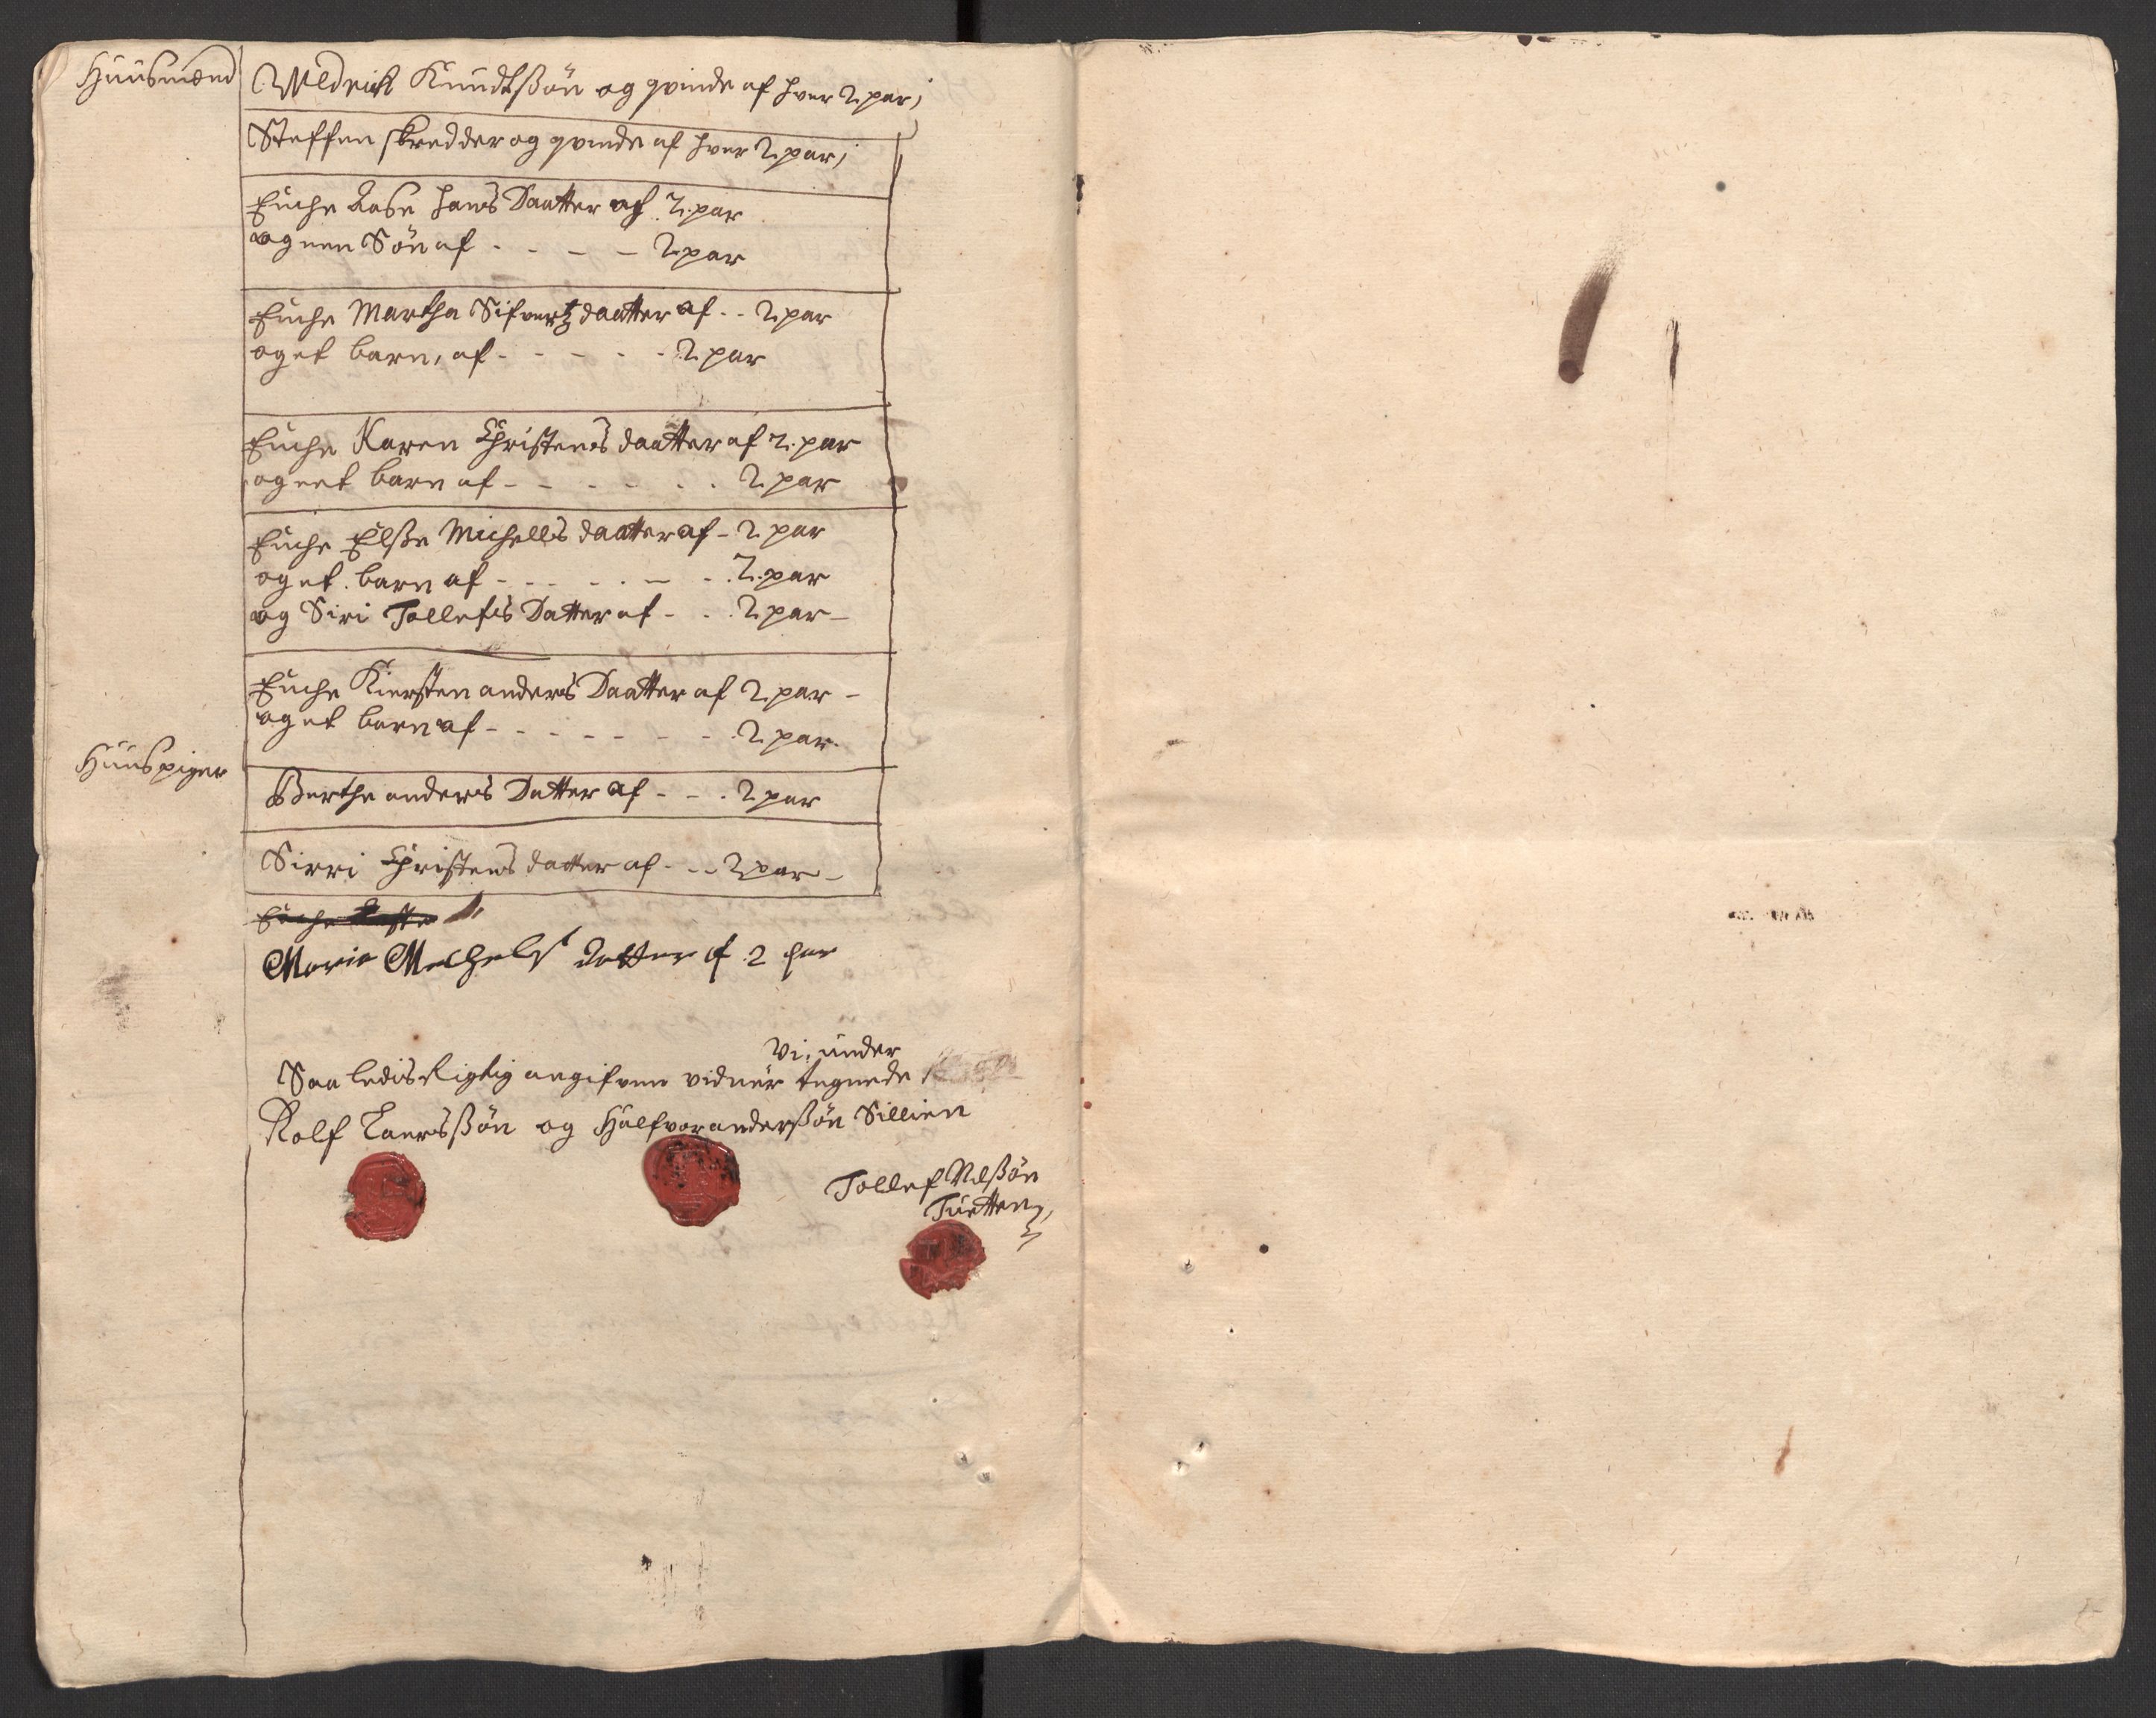 Huusmænd
Wldrich Knudtßøn og qvinde af hver 2 par,
Steffen skredder og qvinde af hver 2 par,
Enche Aase Hans Daatter af 2. par
og een Søn af - - - - 2 par
Enche Martha Sifvertz daatter af - - 2 par
og et barn, af - - - - - 2 par
Enche Karen Christens daatter af 2. par
og eet barn af - - - - - - 2 par
Enche Elße Michells daatter af - 2 par
og et barn af - - - - - - 2 par
og Siri Tollefs Datter af - - 2 par -
Enche Kiersten anders Daatter af 2 par -
og et barn af - - - - - - - 2 par.
Huuspiger
Berthe anders Datter af - - - 2 par
Sirri Christens datter af - - - 2 par -
Enche
Marie Mechels datter af 2 par
Vi, under
Saaledis Rigtig angifven vidner tegnede
Rolf Laersßøn og Halfvor anderßøn Sillien
Tollef Nelßøn
Tuetten,